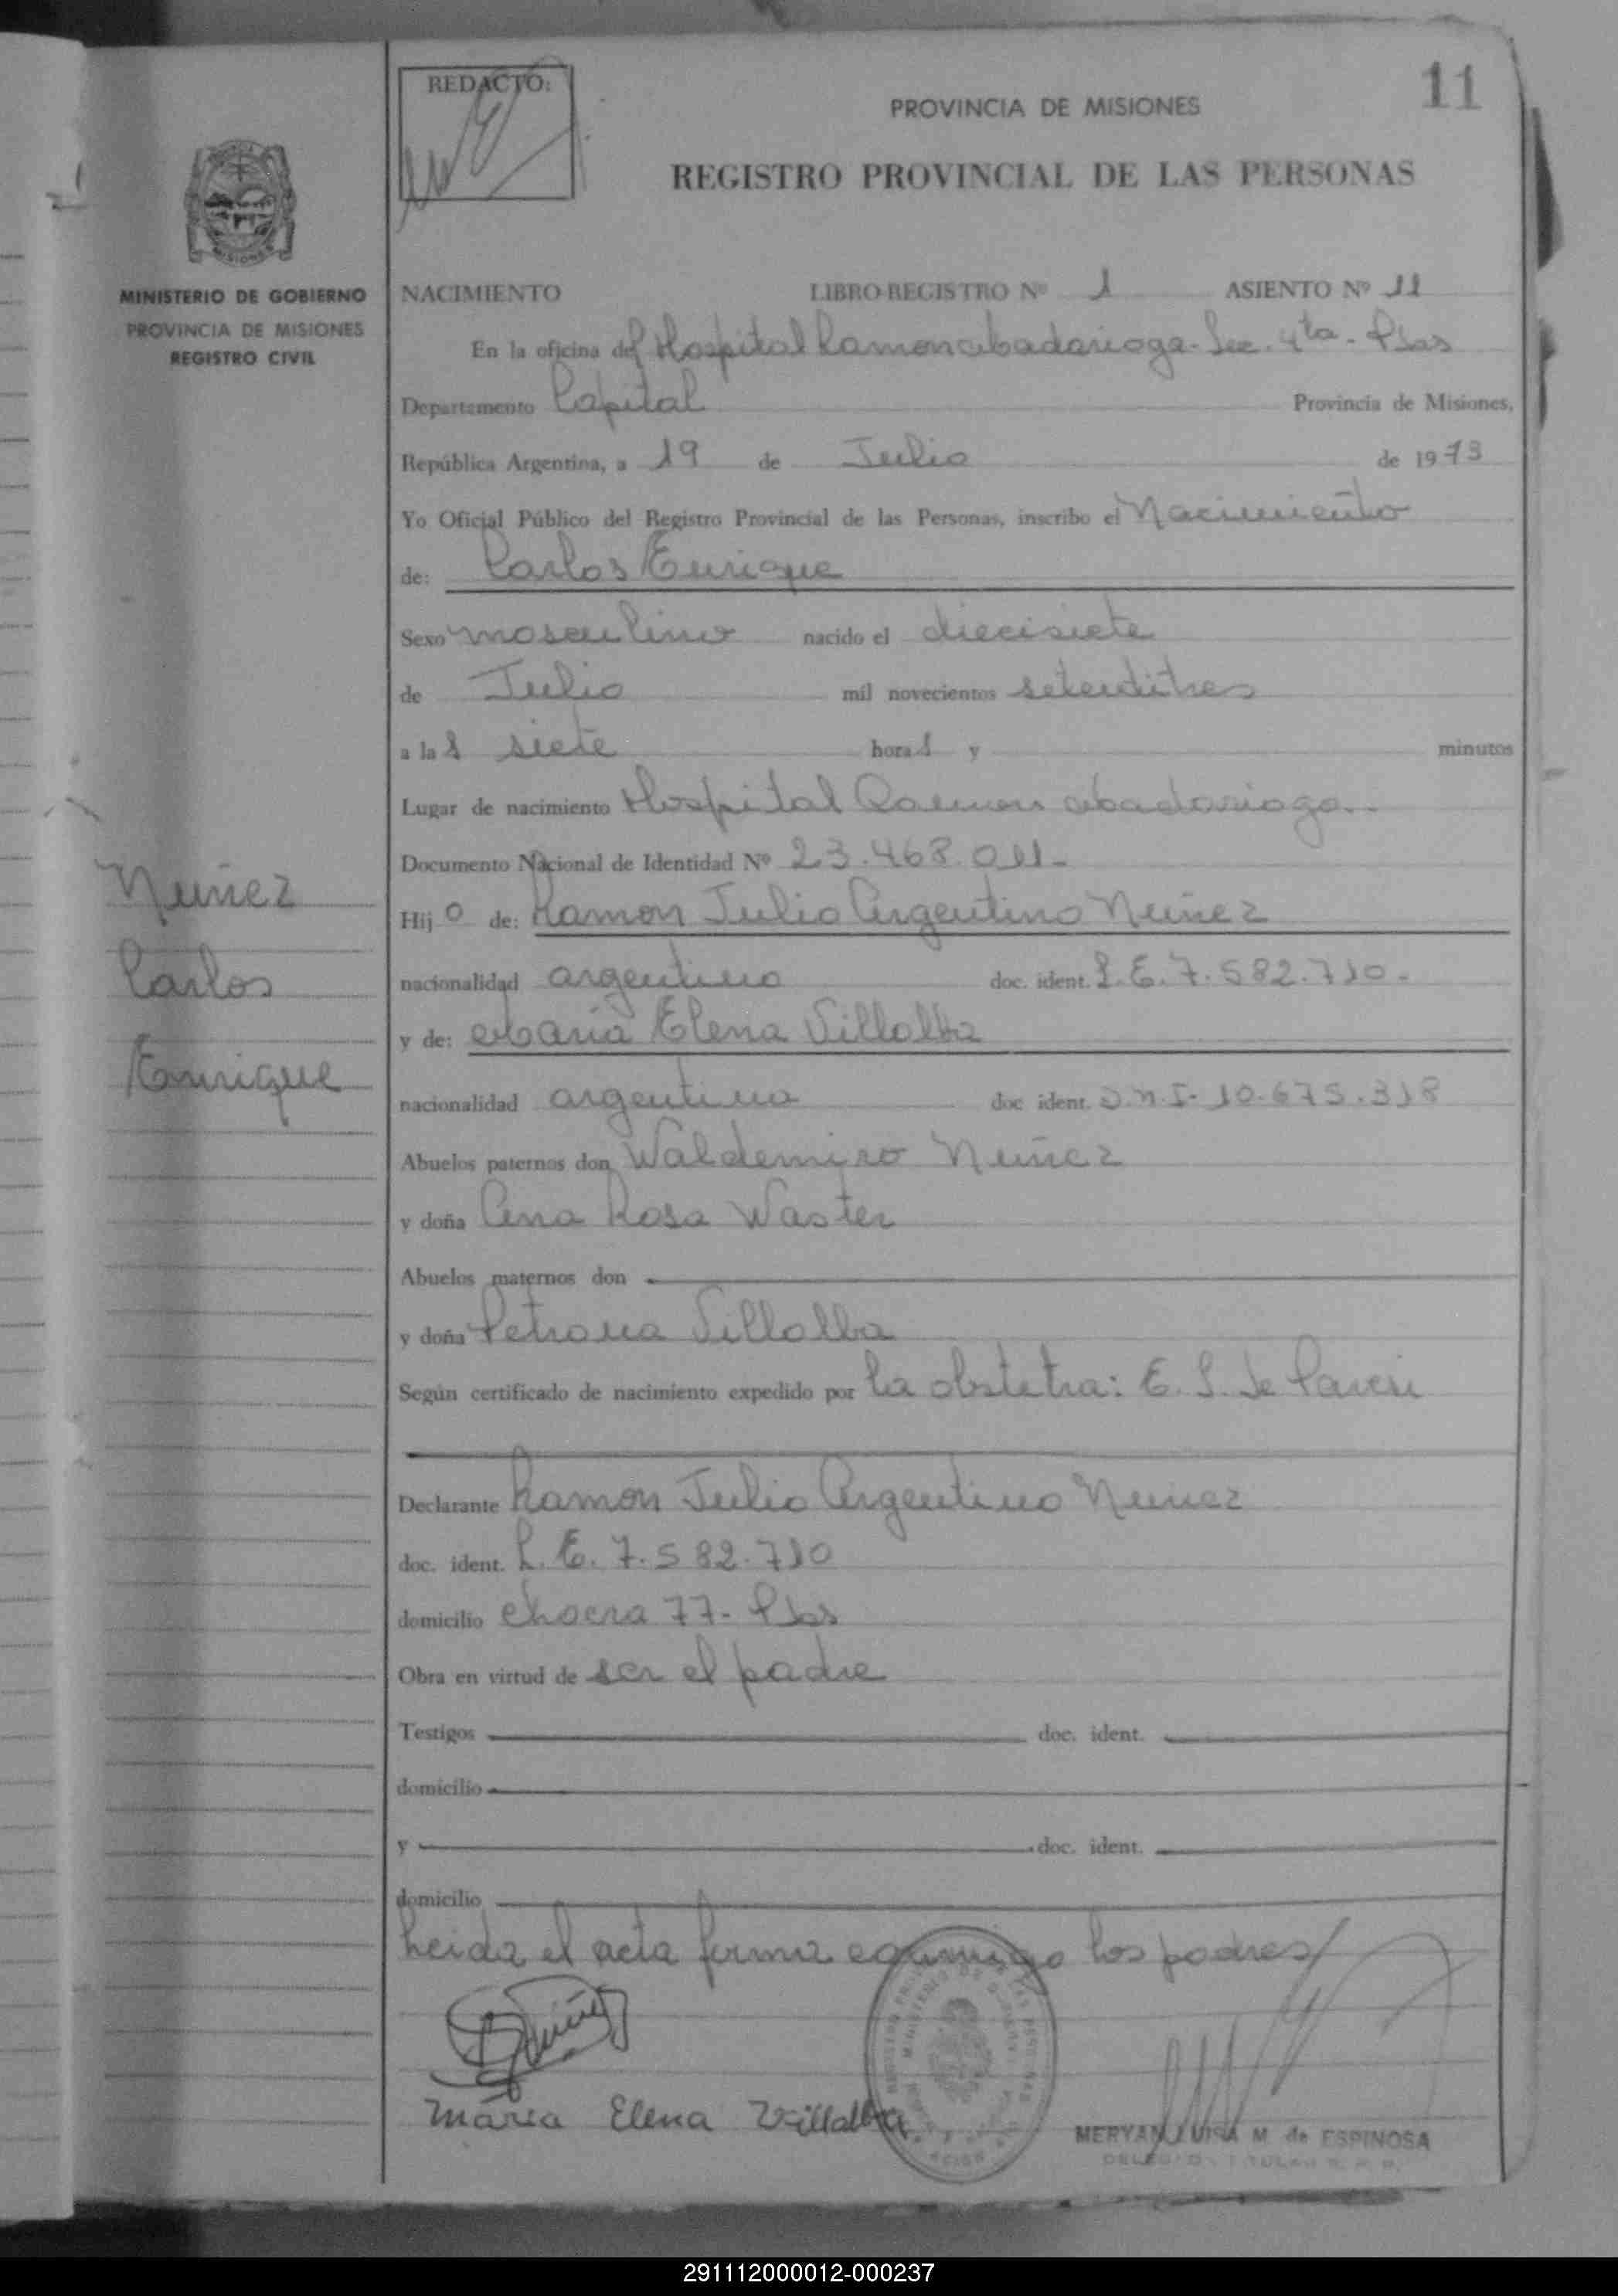 REDACTO:
11
PROVINCIA DE MISIONES
REGISTRO PROVINCIAL DE LAS PERSONAS
MISIONES
MINISTERIO DE GOBIERNO
PROVINCIA DE MISIONES
REGISTRO CIVIL
NACIMIENTO LIBRO-REGISTRO Nº 1 ASIENTO Nº 11
En la oficina del Hospital Ramon Madariaga - Sec. 4ta - Pdas
Departamento Capital Provincia de Misiones,
República Argentina, a 19 de Julio de 1973
Yo Oficial Público del Registro Provincial de las Personas, inscribo el Nacimiento
de: Carlos Enrique
Sexo masculino nacido el diecisiete
de Julio mil novecientos setentitres
a las siete horas y minutos
Lugar de nacimiento Hospital Ramon Madariaga.
Documento Nacional de Identidad Nº 23.468.011-
Nuñez
Carlos
Enrique
Hijo de: Ramon Julio Argentino Nuñez
nacionalidad argentino doc. ident. L.E. 7.582.710.
y de: Maria Elena Villalba
nacionalidad argentina doc. ident. D.N.I- 10.675.318
Abuelos paternos don Waldemiro Nuñez
y doña Ana Rosa Waster
Abuelos maternos don
y doña Petrona Villalba
Según certificado de nacimiento expedido por la obstetra: E. S. de
Declarante Ramon Julio Argentino Nuñez
doc. ident. L.E. 7.582.710
domicilio chacra 77- Pdas
Obra en virtud de ser el padre
Testigos doc. ident.
domicilio
y doc. ident.
domicilio
Leida el acta firma conmigo los padres
Maria Elena Villalba
MERYAN LUISA M. de ESPINOSA
291112000012-000237